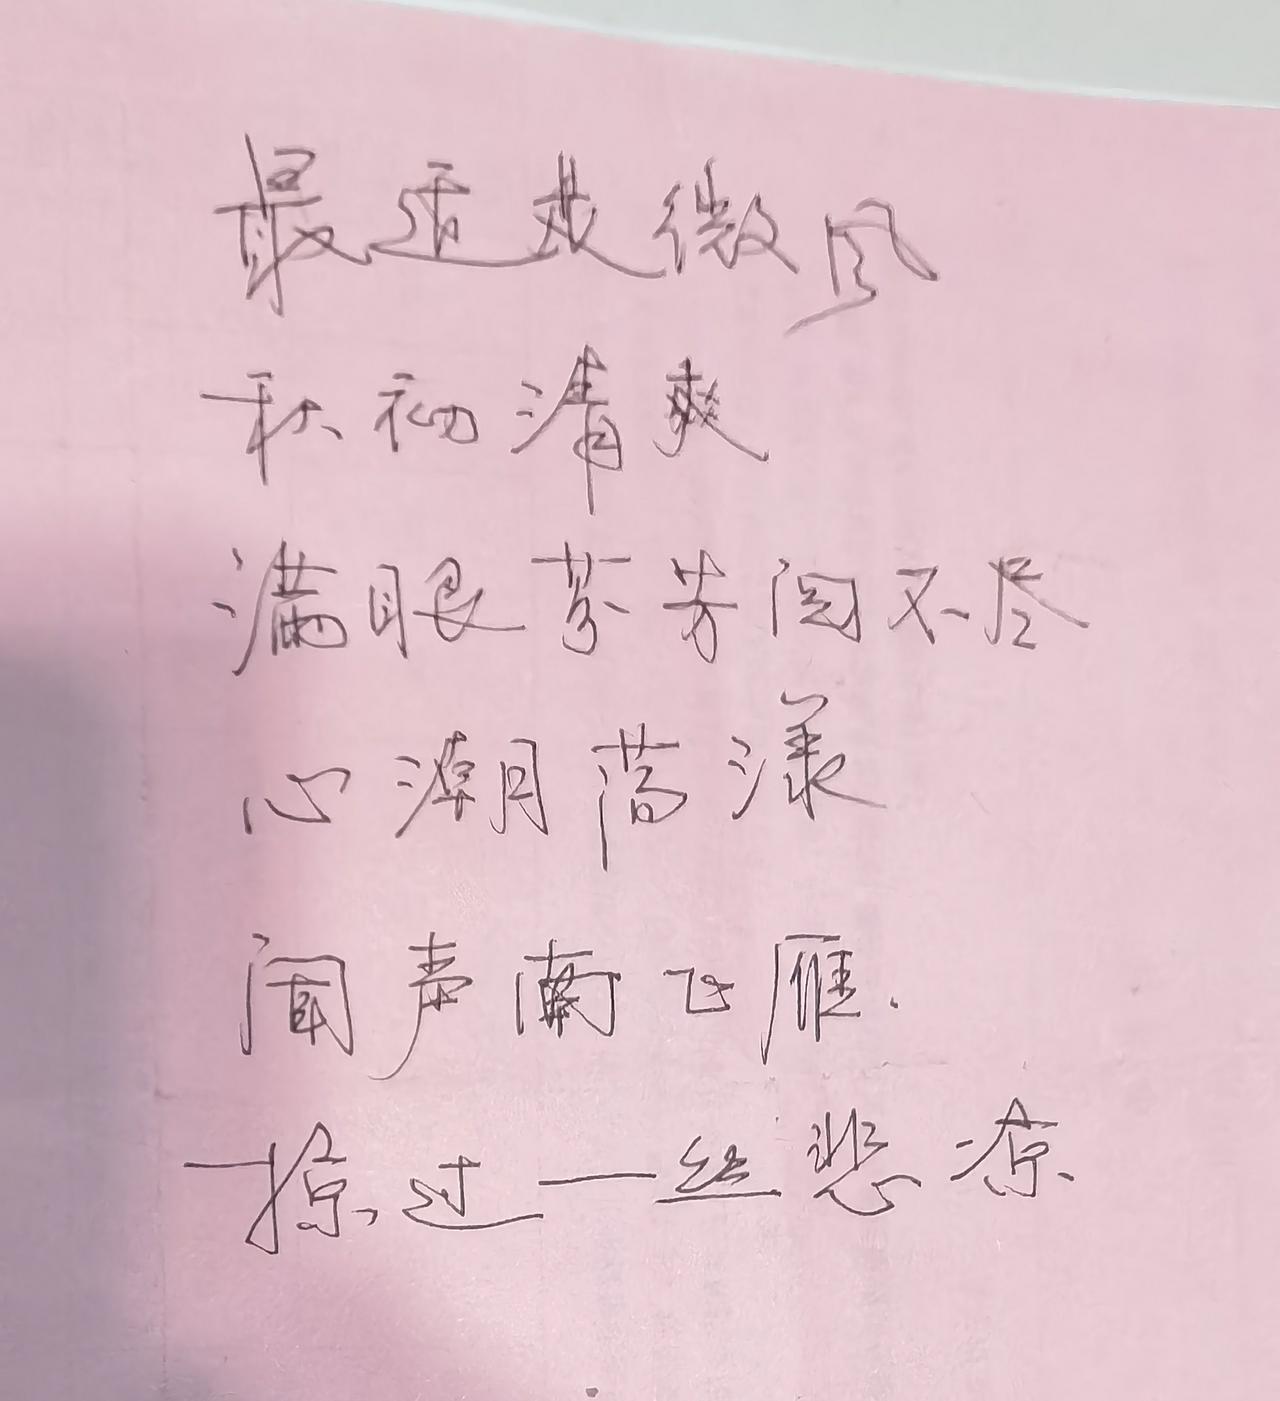 最适是微风
秋初清爽
满眼芬芳阅不尽
心潮荡漾
闻声南飞雁.
掠过一丝悲凉